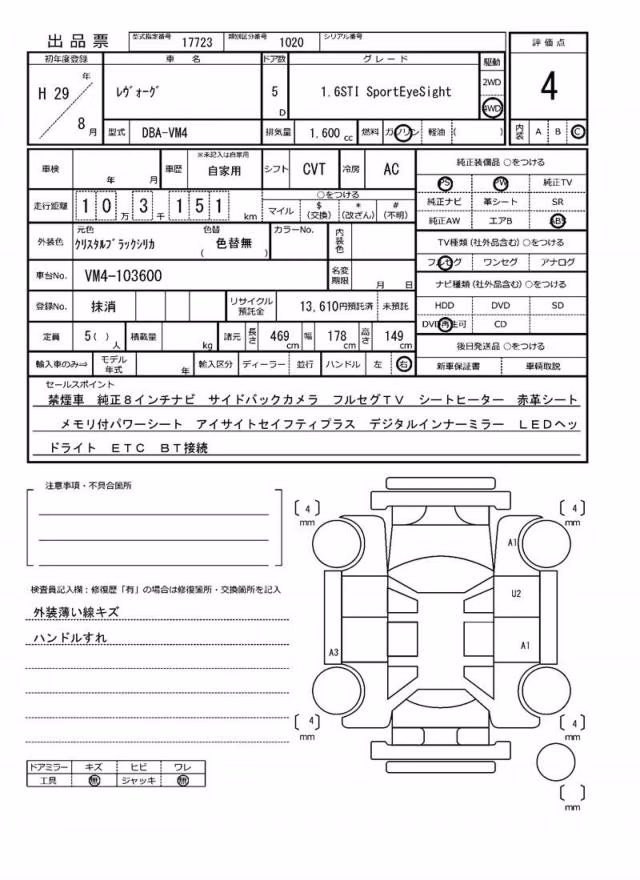 出品票 型式指定番号 17723 類別区分番号 1020 シリアル番号
初年度登録 車名 ドア数 グレード 駆動 評価点
H 29 年 8 月 ﾚｳﾞｫｰｸﾞ 5 D 1.6STI SportEyeSight 2WD 4WD 4
型式 DBA-VM4 排気量 1,600 cc 燃料 ガソリン 軽油 ( ) 内装 A B C
車検 年 月 車歴 ※未記入は自家用 自家用 シフト CVT 冷房 AC 純正装備品 ○をつける
PS PW 純正TV
走行距離 1 0 万 3 千 1 5 1 km ○をつける マイル $ (交換) * (改ざん) # (不明) 純正ナビ 革シート SR
純正AW エアB ABS
外装色 元色 ｸﾘｽﾀﾙﾌﾞﾗｯｸｼﾘｶ 色替 ( 色替無 ) カラーNo. 内装色 TV種類 (社外品含む) ○をつける
フルセグ ワンセグ アナログ
車台No. VM4-103600 名変期限 月 日 ナビ種類 (社外品含む) ○をつける
登録No. 抹消 リサイクル預託金 13,610円預託済 未預託 HDD DVD SD
DVD再生可 CD
定員 5( ) 人 積載量 kg 諸元 長さ 469 cm 幅 178 cm 高さ 149 cm 後日発送品 ○をつける
輸入車のみ⇒ モデル年式 年 輸入区分 ディーラー 並行 ハンドル 左 右 新車保証書 車輌取説
セールスポイント
禁煙車 純正8インチナビ サイドバックカメラ フルセグTV シートヒーター 赤革シート
メモリ付パワーシート アイサイトセイフティプラス デジタルインナーミラー LEDヘッ
ドライト ETC BT接続
注意事項・不具合箇所
検査員記入欄：修復歴「有」の場合は修復箇所・交換箇所を記入
外装薄い線キズ
ハンドルすれ
[ 4 ] mm [ 4 ] mm
A1
U2
A3 A1
[ 4 ] mm [ 4 ] mm
[ ] mm
ドアミラー キズ ヒビ ワレ
工具 無 ジャッキ 無